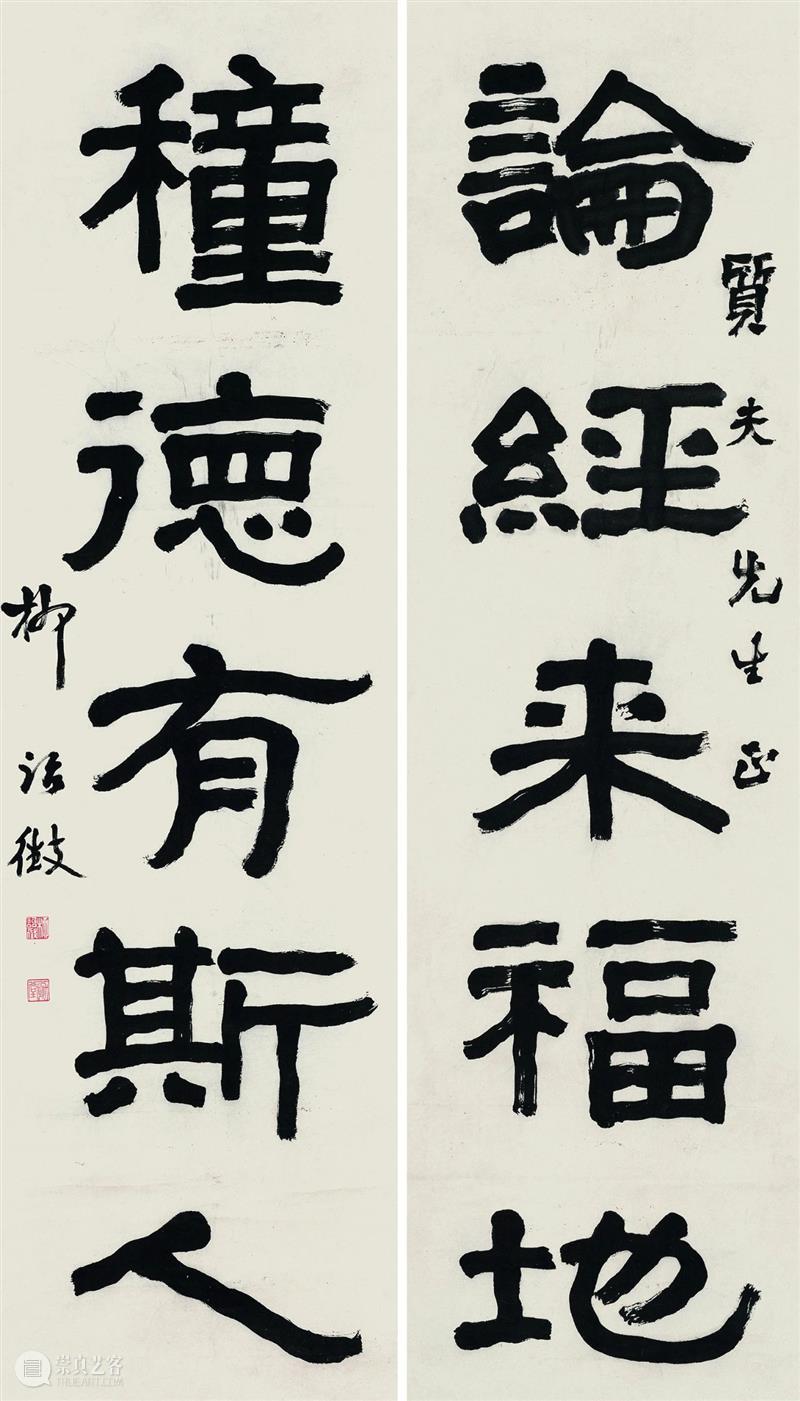 論經来福地
質夫先生正
穜德有斯人
柳詒徵
崇真艺客
TRUEART.COM